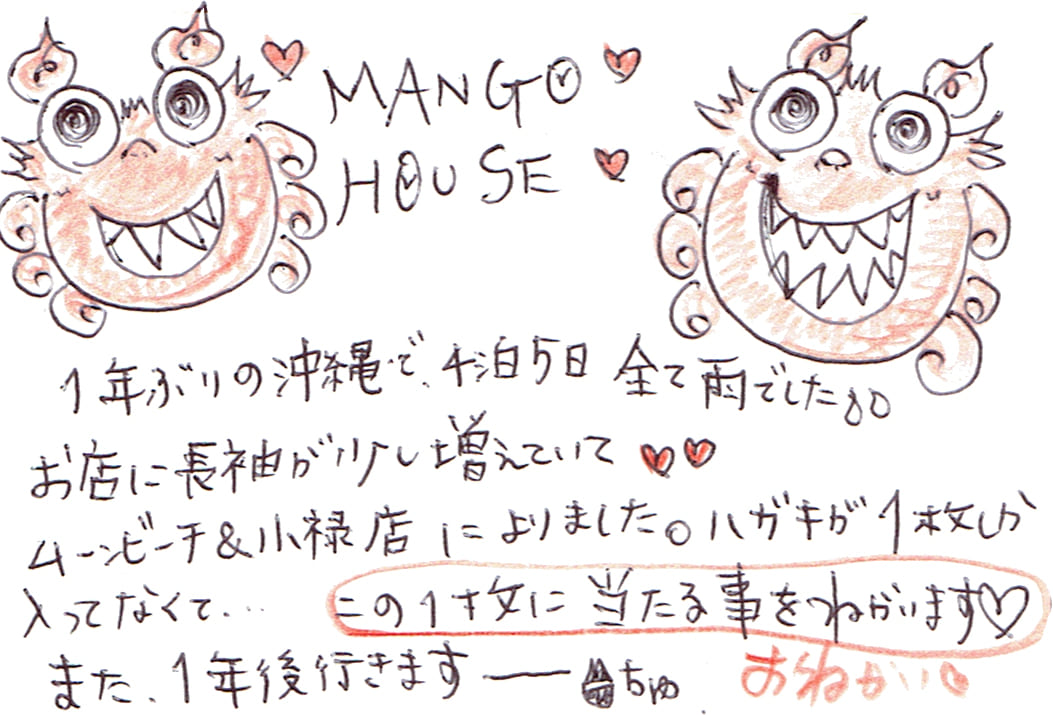 MANGO
HOUSE
1年ぶりの沖縄で、4泊5日 全て雨でした
お店に長袖が少し増えていて
ムーンビーチ&小禄店 によりました。ハガキが1枚しか
入ってなくて… この1枚に当たる事をねがいます♡
また、1年後行きます―― ちゅ
おねがい